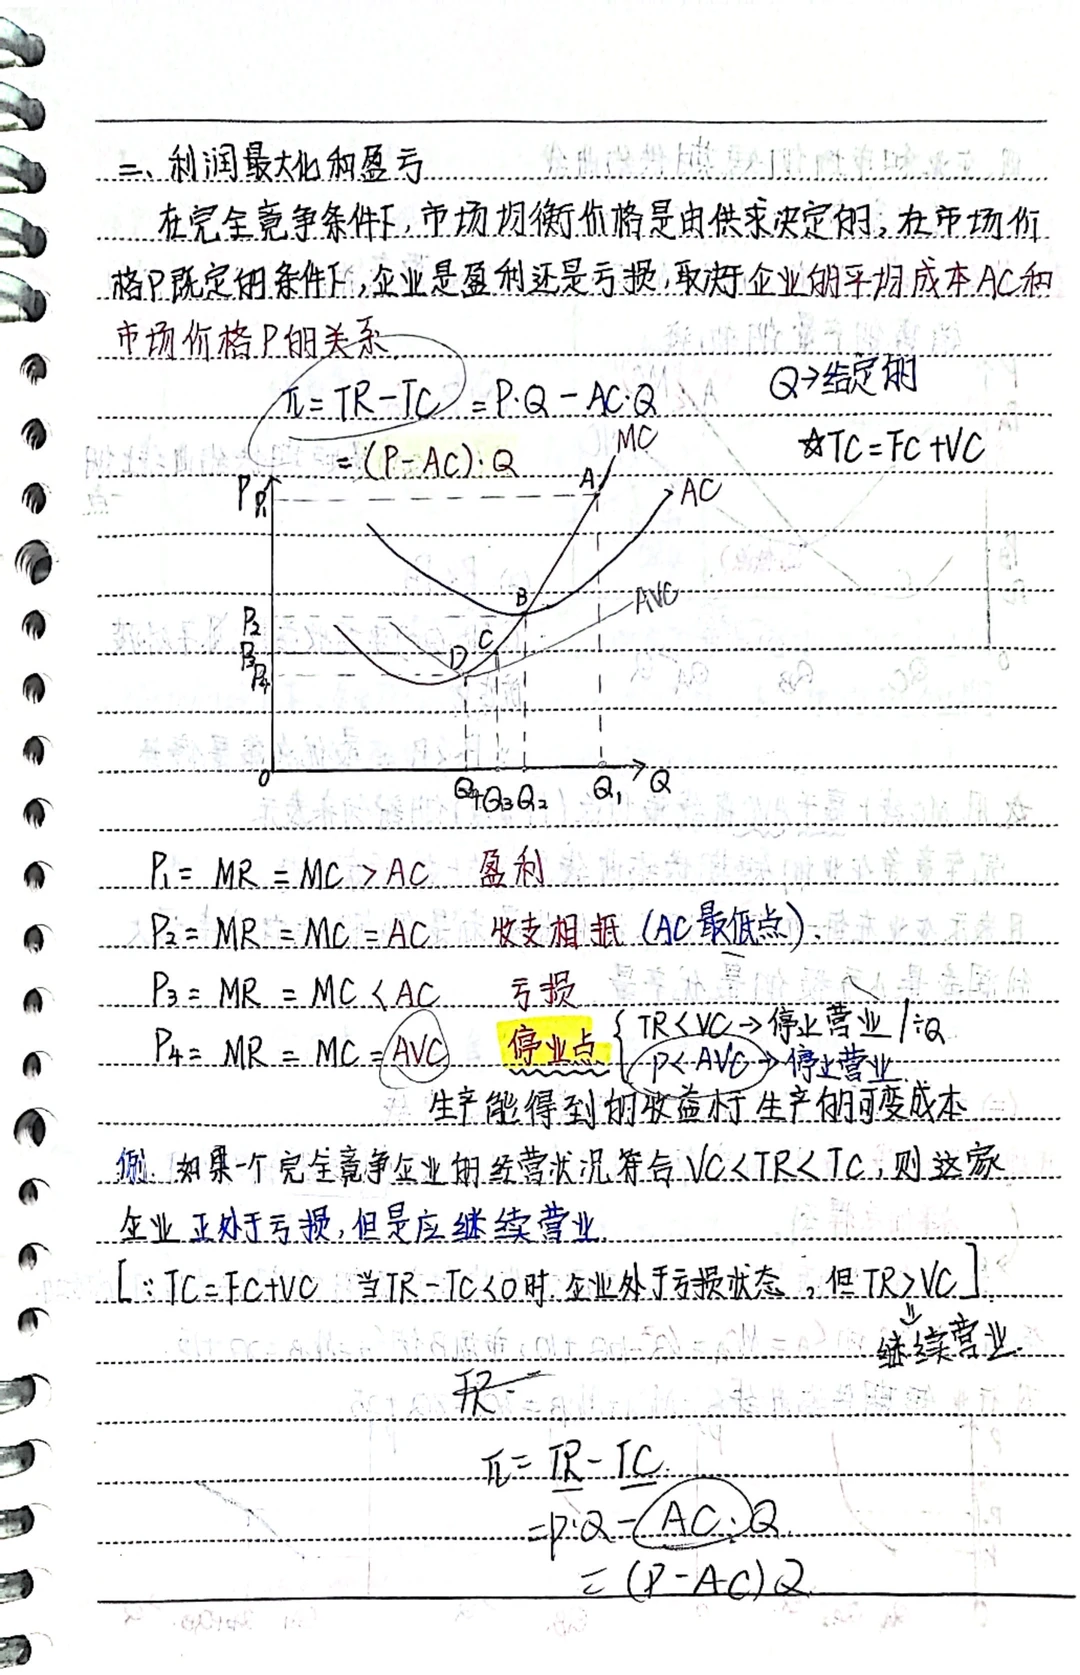 二、利润最大化和盈亏
在完全竞争条件下,市场均衡价格是由供求决定的,在市场价
格P既定的条件下,企业是盈利还是亏损,取决于企业的平均成本AC和
市场价格P的关系.
π=TR-TC =P·Q-AC·Q
Q→给定的
=(P-AC)·Q
☆TC=FC+VC
MC
P
P₁
A
AC
B
AVC
P₂
P₃
P₄
C
D
O
Q₄ Q₃ Q₂ Q₁ Q
P₁= MR = MC > AC 盈利
P₂= MR = MC = AC 收支相抵 (AC最低点).
P₃= MR = MC < AC 亏损
TR<VC→停止营业 /÷Q
P₄= MR = MC = AVC 停业点
P<AVC→停止营业
生产能得到的收益小于生产的可变成本
例. 如果一个完全竞争企业的经营状况符合VC<TR<TC,则这家
企业正处于亏损,但是应继续营业.
[∵TC=FC+VC 当TR-TC<0时.企业处于亏损状态,但TR>VC]
⇓
继续营业.
π=TR-TC.
=P·Q-AC·Q
=(P-AC)Q